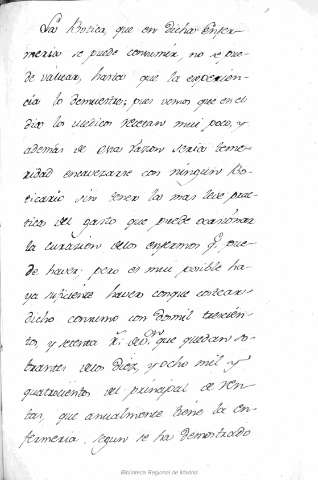 La Botica, que en dicha Enfer-
meria se puede consumir, no se pue-
de valuar, hasta que la experien-
cia lo demuestre; pues vemos que en el
dia los Medicos recetan mui poco, y
además de esta razon seria teme-
ridad encavezarse con ningun Bo-
ticario sin tener la mas leve prac-
tica del gasto que puede ocasionar
la curazion de los enfermos q.e pue-
de haver; pero es mui posible ha-
ya suficiente haver conque costear
dicho consumo con dosmil trescien-
tos, y setenta r.s que quedan so-
brantes de los diez, y ocho mil y
quatrocientos del principal de ren-
tas, que anualmente tiene la en-
fermeria, segun se ha demostrado
Biblioteca Regional de Madrid